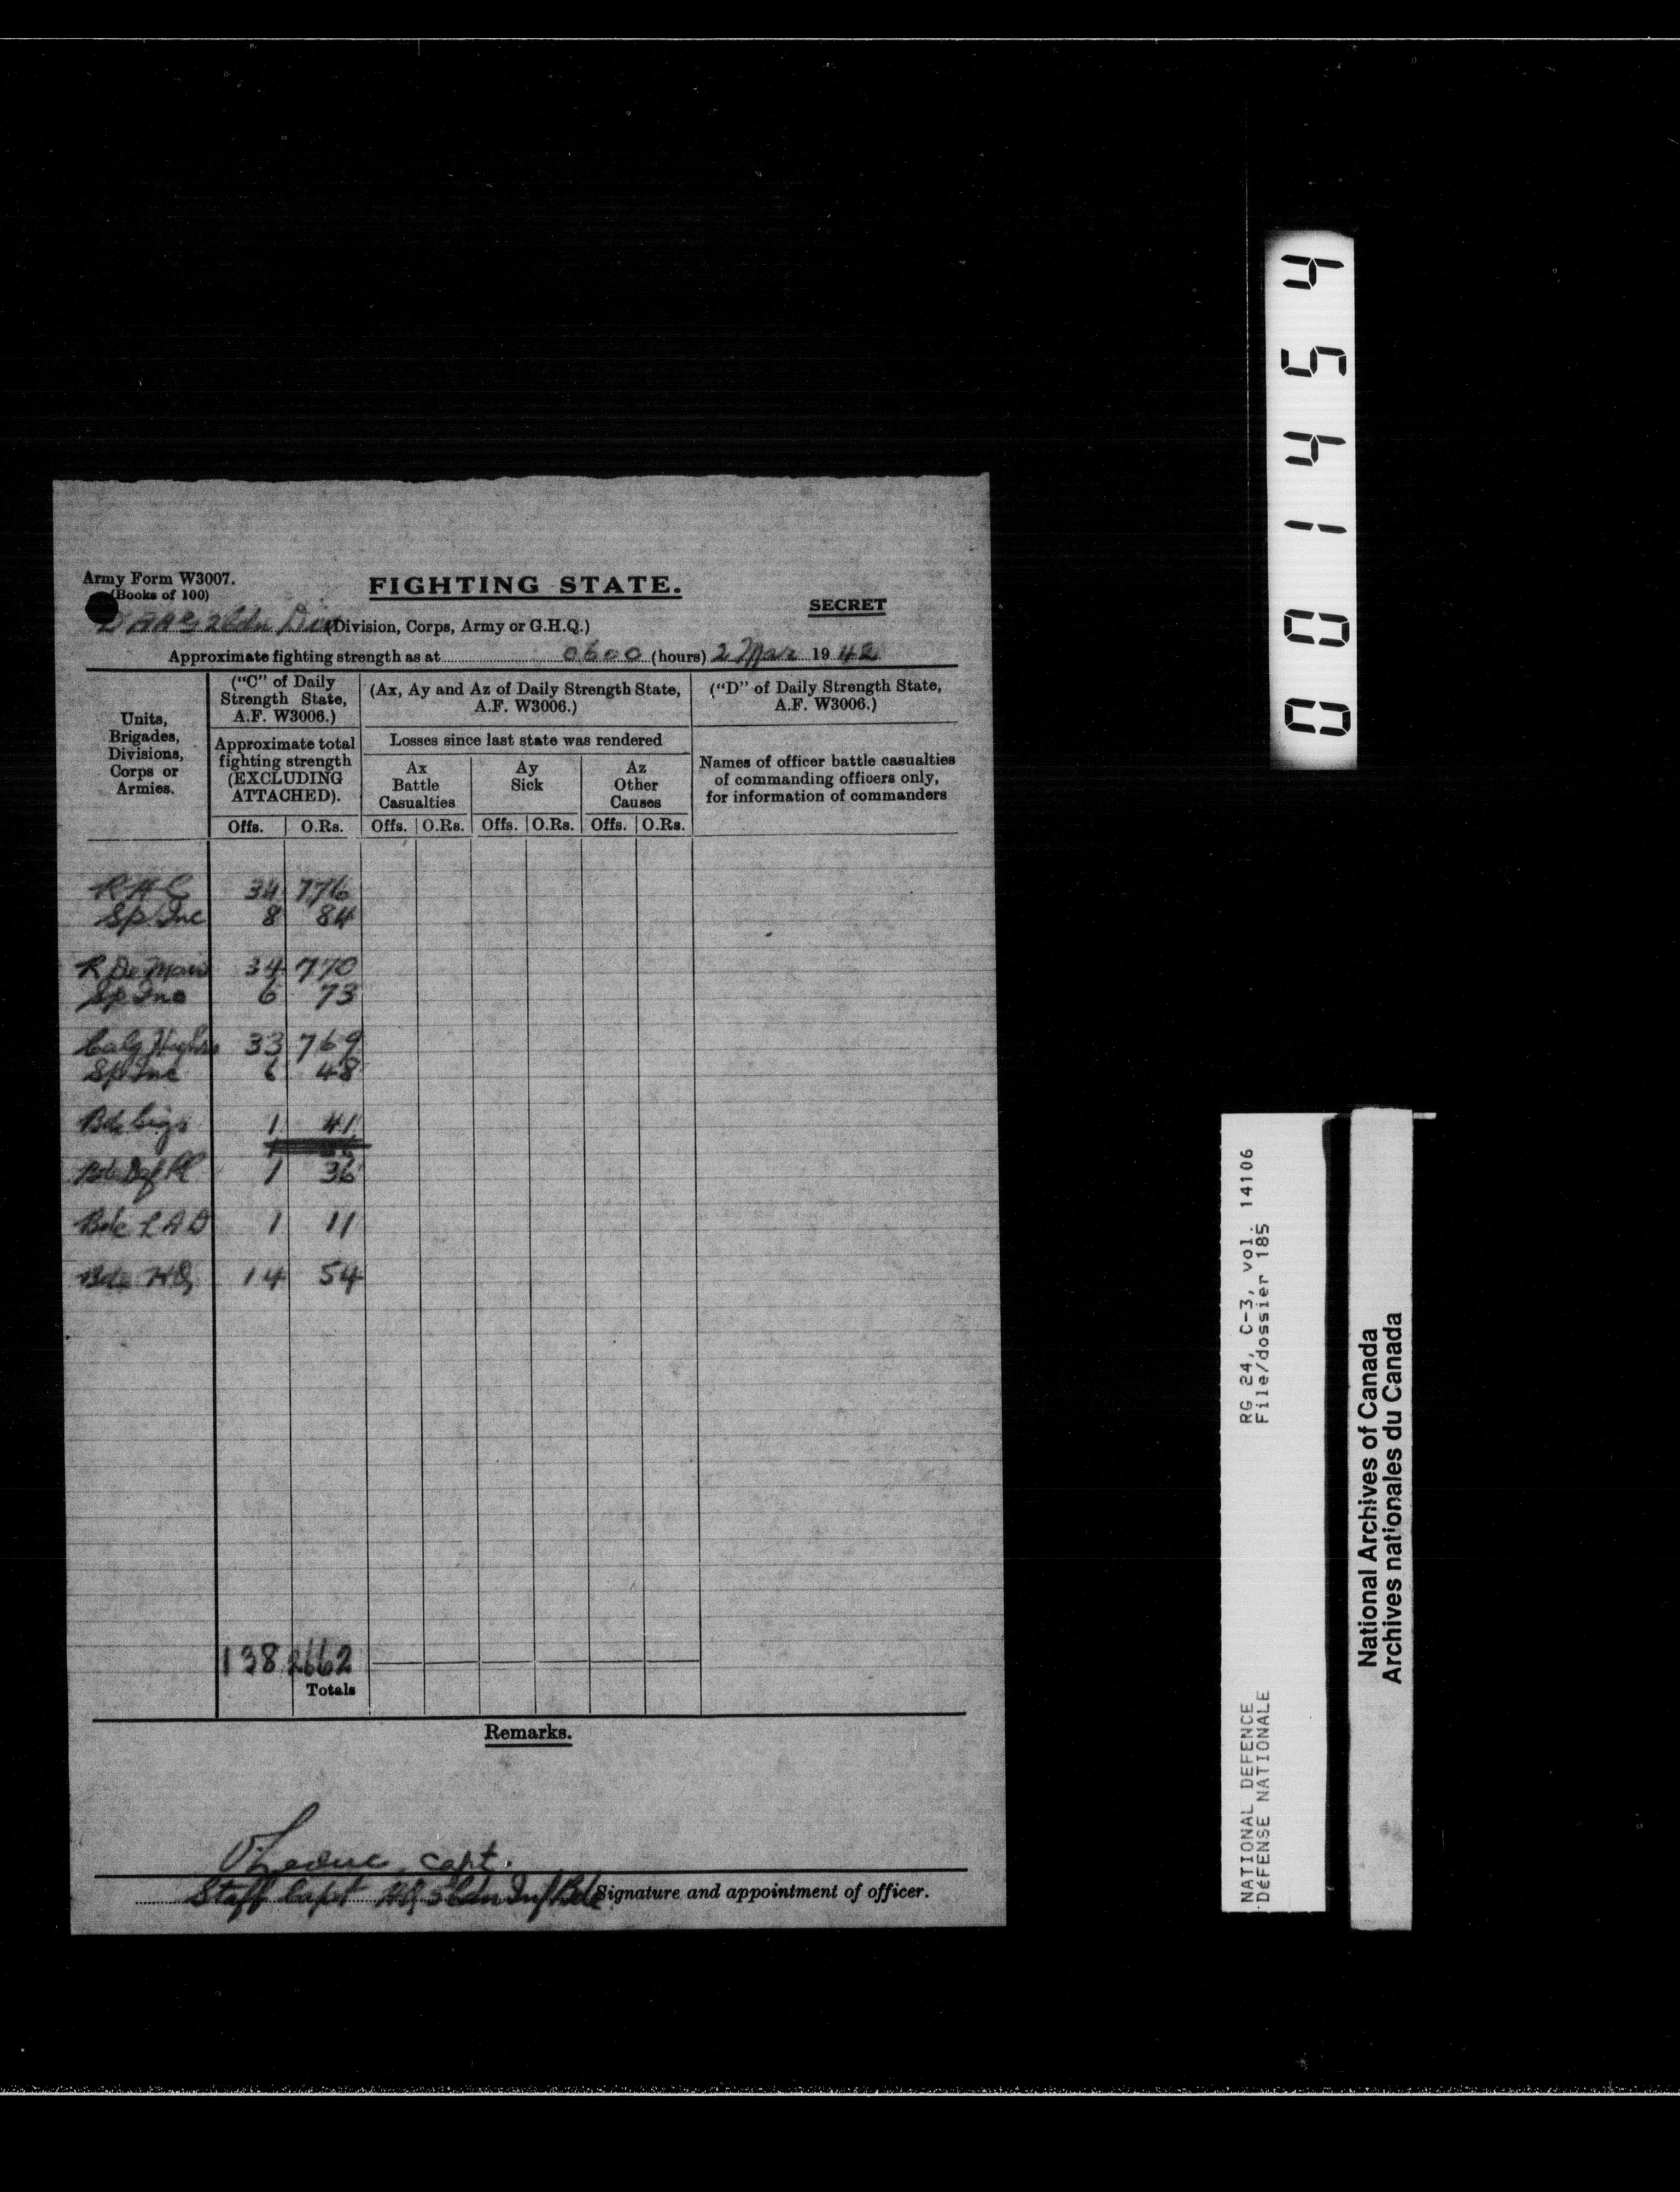 Army Form W3007.
(Books of 100)
FIGHTING STATE.
SECRET
2 Cdn Div (Division, Corps, Army or G.H.Q.)
Approximate fighting strength as at 0600 (hours) 2 Mar 1942
Units, Brigades, Divisions, Corps or Armies.
("C" of Daily Strength State, A.F. W3006.)
Approximate total fighting strength (EXCLUDING ATTACHED).
(Ax, Ay and Az of Daily Strength State, A.F. W3006.)
Losses since last state was rendered
Ax Battle Casualties
Ay Sick
Az Other Causes
("D" of Daily Strength State, A.F. W3006.)
Names of officer battle casualties of commanding officers only, for information of commanders
Offs. O.Rs. Offs. O.Rs. Offs. O.Rs. Offs. O.Rs.
R H C 34 776
Sp Inc 8 84
R De Mais 34 770
Sp Inc 6 73
Calg Highrs 33 769
Sp Inc 6 48
Bde Sigs 1 41
Bde Def Pl 1 36
Bde L A D 1 11
Bde HQ 14 54
138 2662
Totals
Remarks.
Capt.
Staff Capt HQ 5 Cdn Inf Bde Signature and appointment of officer.
001454
RG 24, C-3, vol. 14106
File/dossier 185
NATIONAL DEFENCE
DÉFENSE NATIONALE
National Archives of Canada
Archives nationales du Canada